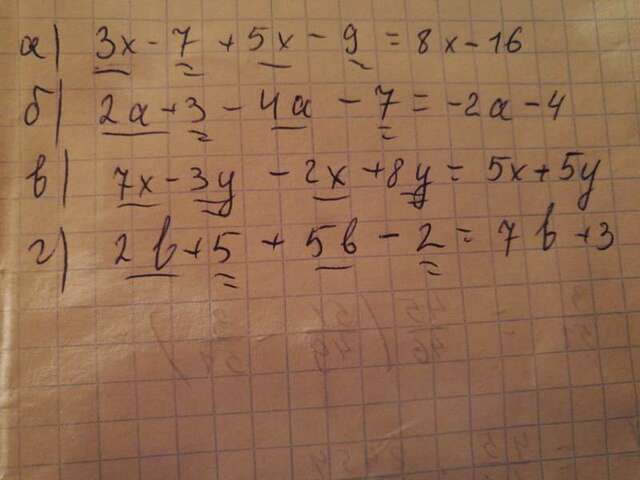 а) 3x - 7 + 5x - 9 = 8x - 16
б) 2a + 3 - 4a - 7 = -2a - 4
в) 7x - 3y - 2x + 8y = 5x + 5y
г) 2b + 5 + 5b - 2 = 7b + 3